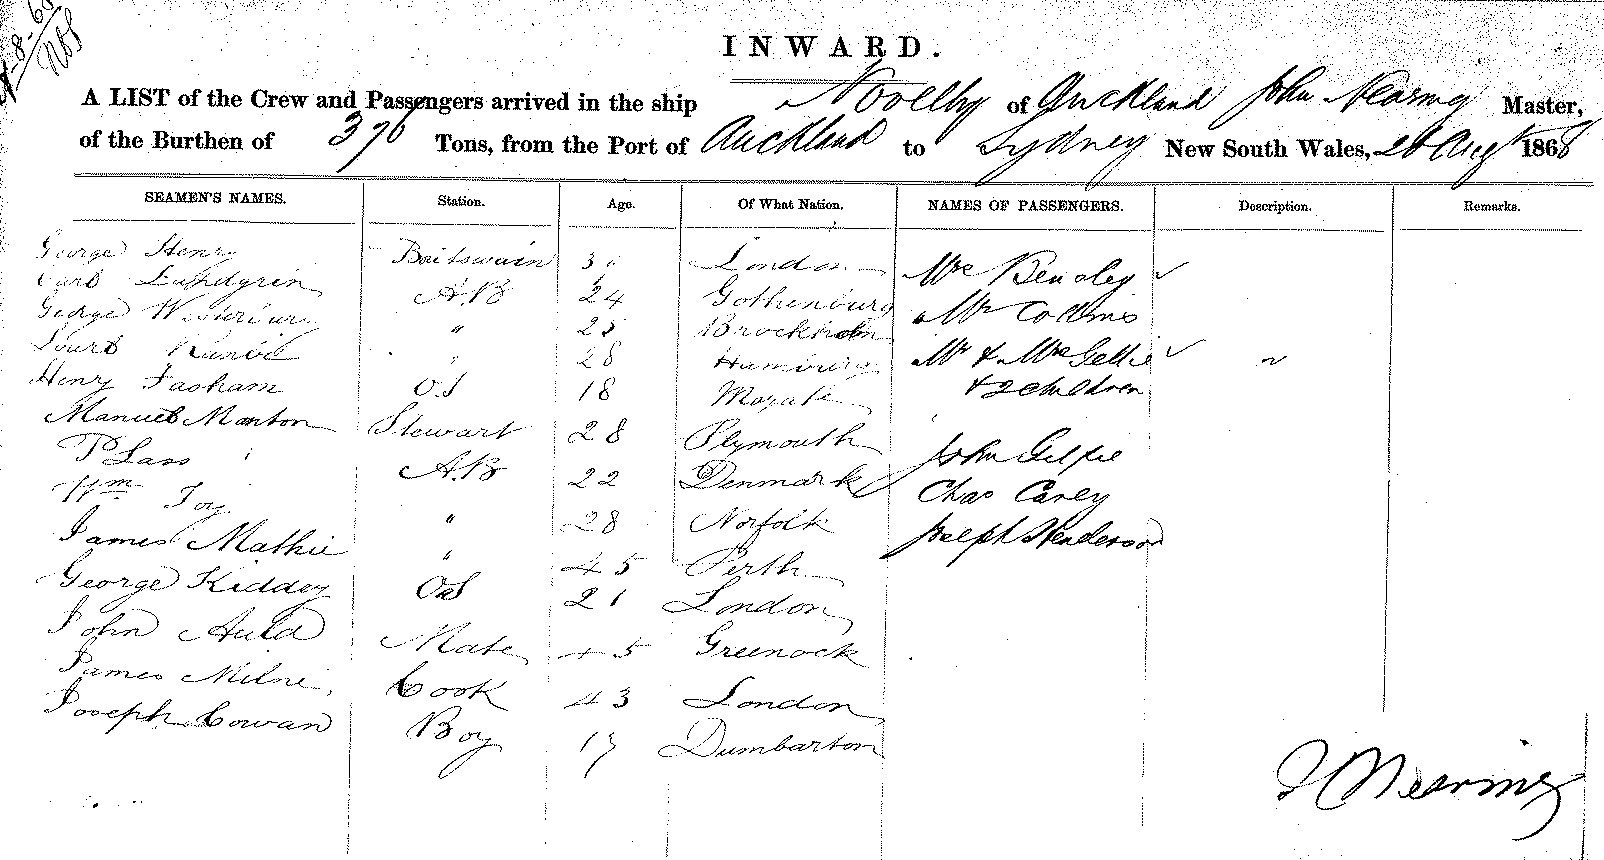 INWARD.
A LIST of the Crew and Passengers arrived in the ship Novelty of Auckland John Nearing Master,
of the Burthen of 376 Tons, from the Port of Auckland to Sydney New South Wales, Augt 1868
SEAMEN'S NAMES. Station. Age. Of What Nation. NAMES OF PASSENGERS. Description. Remarks.
George Henry Boitswain London Mrs
Carl Lundgrin A.B 24 Gothenburg Mr Collins
George " 25
" 28 Hamburg Mr & Mrs Gellie
Henry Fasham O.S 18 Margate & 2 children
Manuel Manton Stewart 28 Plymouth
P Lass A.B 22 Denmark John Gelfie
Wm Joy " 28 Norfolk Chas Carey
James Mathie " 45 Perth Joseph Henderson
George Kiddey O.S 21 London
John Auld Mate 45 Greenock
James Milne, Cook 43 London
Joseph Cowan Boy 17 Dumbarton
J Nearing